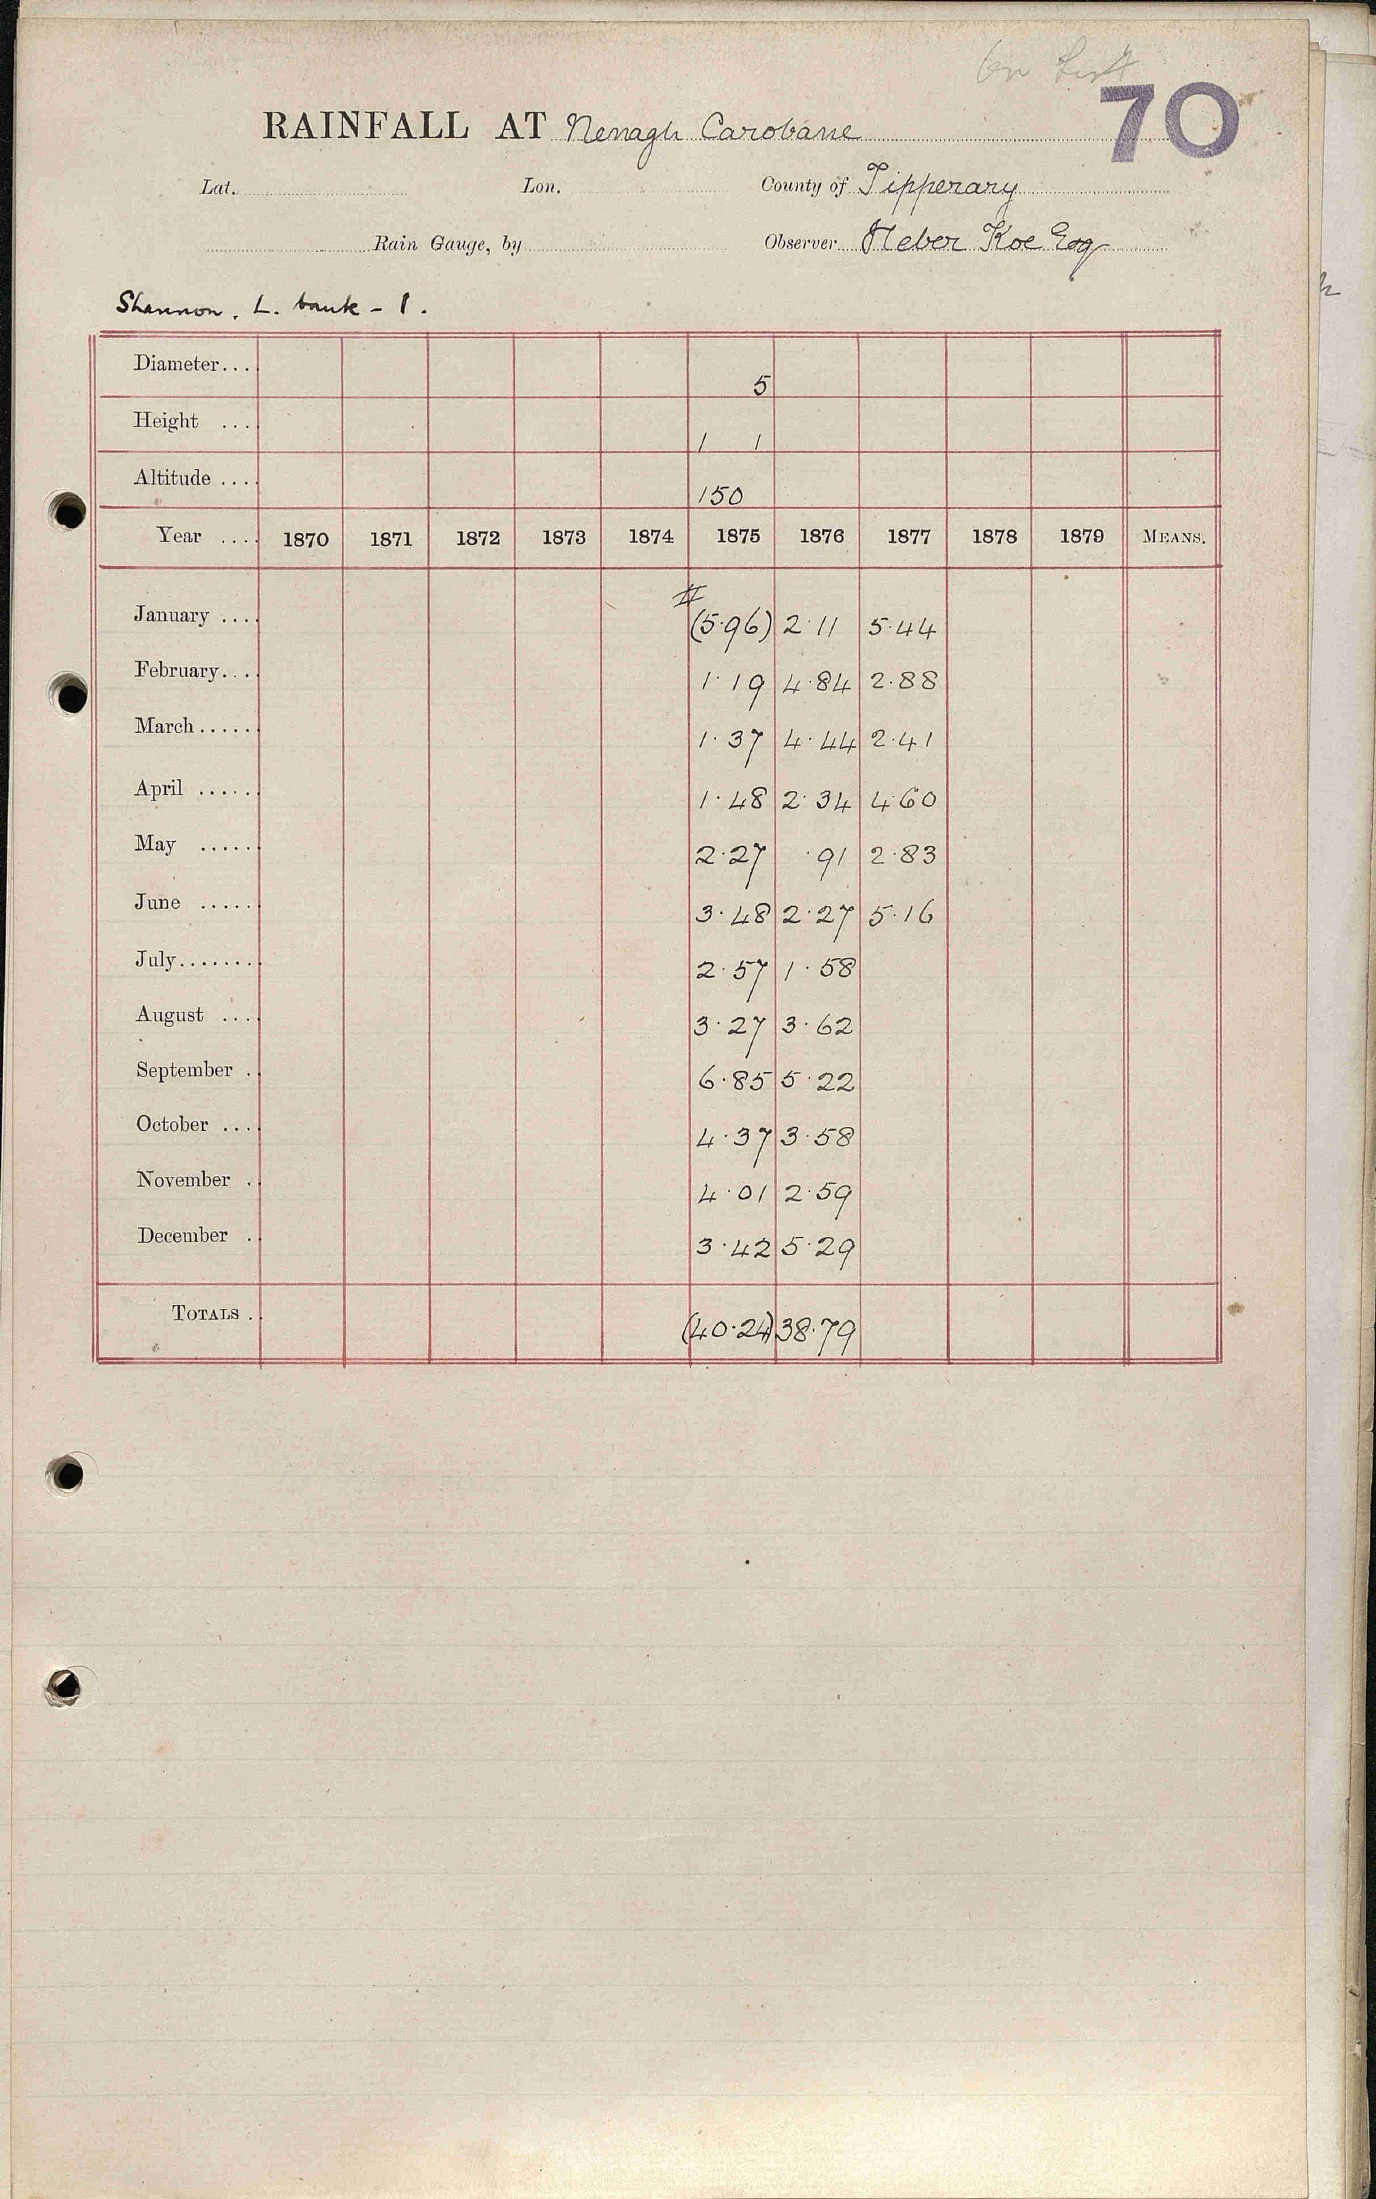 On List
70
RAINFALL AT Nenagh Carobane
Lat. Lon. County of Tipperary
Rain Gauge, by Observer Heber Koe Esq
Shannon. L. bank - 1.
Diameter... 5
Height ... 1 1
Altitude .... 150
Year .... 1870 1871 1872 1873 1874 1875 1876 1877 1878 1879 MEANS.
#
January .... (5.96) 2.11 5.44
February.... 1.19 4.84 2.88
March...... 1.37 4.44 2.41
April ...... 1.48 2.34 4.60
May ..... 2.27 .91 2.83
June ..... 3.48 2.27 5.16
July........ 2.57 1.58
August .... 3.27 3.62
September .. 6.85 5.22
October .... 4.37 3.58
November .. 4.01 2.59
December .. 3.42 5.29
TOTALS .. (40.24) 38.79